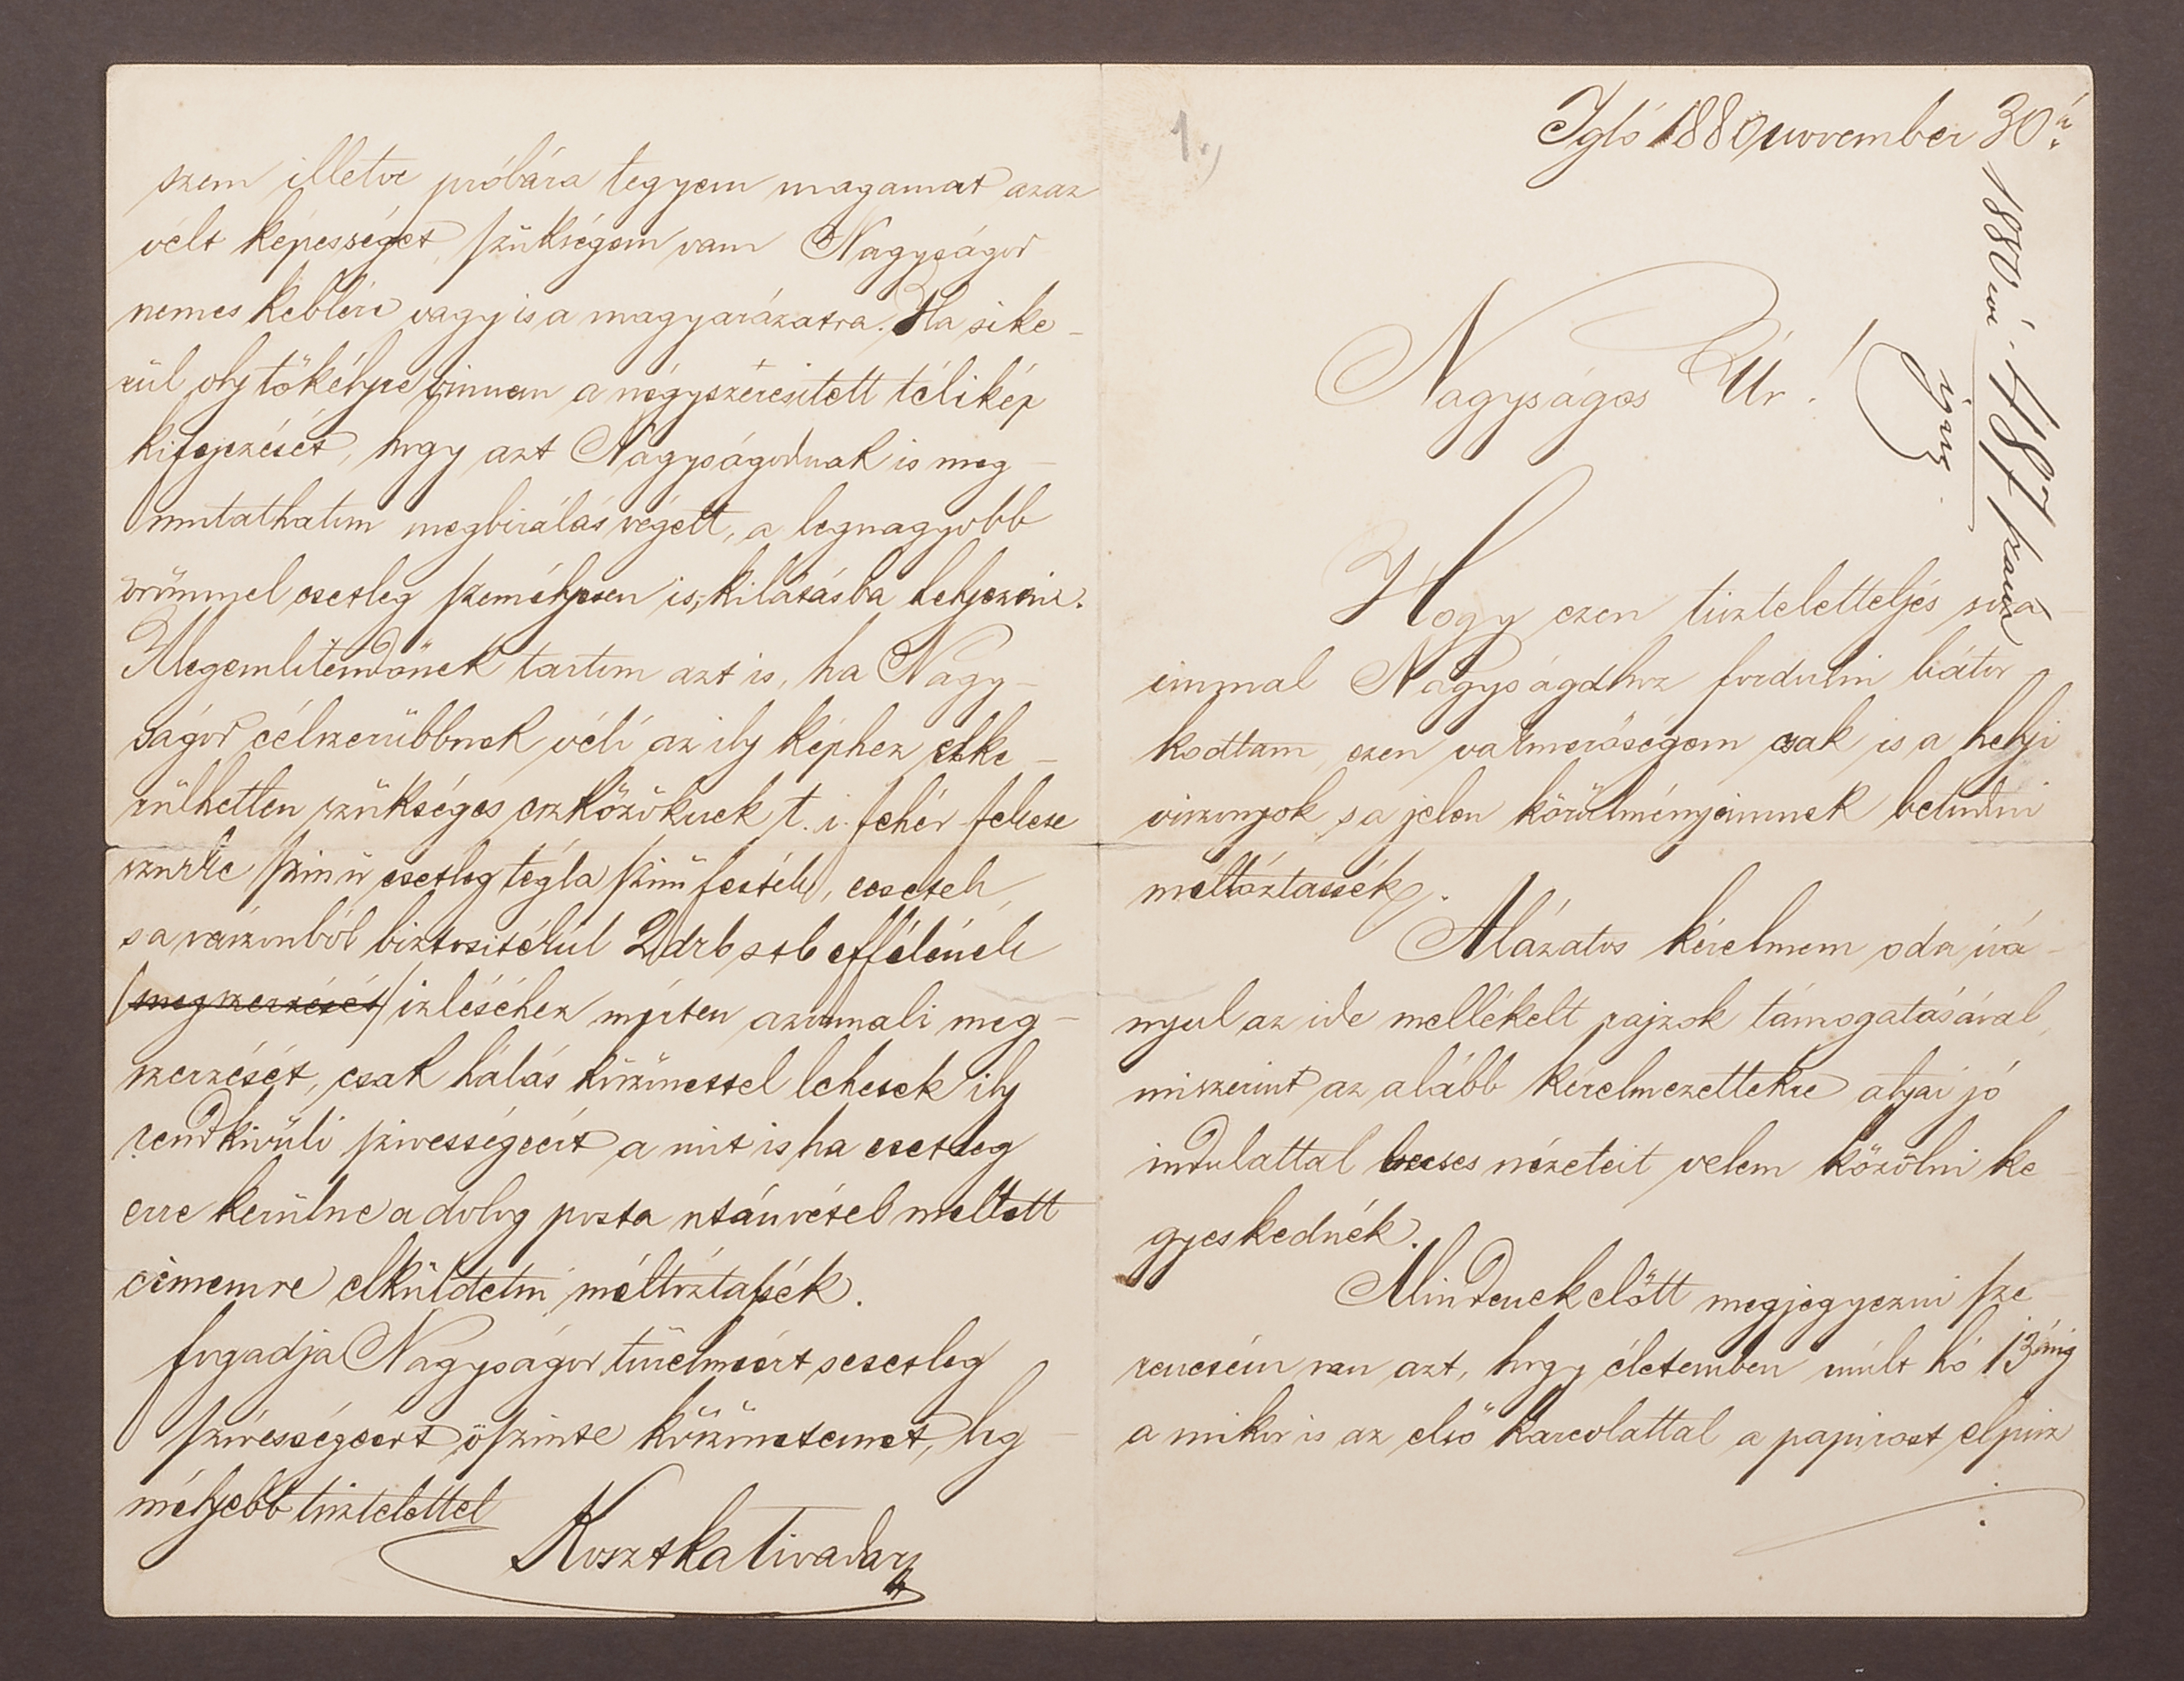 1.)
Igló 1880 november 30án
1880 évi 487 szám
igaz.
Nagyságos Úr!
Hogy ezen tiszteletteljes sora
immal Nagyságdhoz fordulni bátor
kodtam, ezen vakmerőségem csak is a helyi
viszonyok s a jelen körülményeimnek betudni
méltóztassék.
Alázatos kérelmem oda irá-
nyul az ide mellékelt rajzok támogatásával,
miszerint az alább kérelmezettekre atyai jó
indulattal becses nézeteit velem közölni ke
gyeskednék.
Mindenekelőtt megjegyezni sze
rencsém van azt, hogy életemben múlt hó 13áig
a mikor is az első karcolattal a papirost elpisz
szem illetve próbára tegyem magamat azaz
vélt képességet, szükségem van Nagyságod
nemes keblére vagyis a magyarázatra. Ha sike-
rül oly tökélyre vinnem a négyszeresitett télikép
kifejezését, hogy azt Nagyságodnak is meg-
mutathatom megbirálás végett, a legnagyobb
örömmel esetleg személyesen is, kilátásba helyezni.
Megemlitendőnek tartom azt is, ha Nagy-
ságod célszerübbnek véli az ily képhez elke-
rülhetlen szükséges eszközöknek t. i. fehér fekete
szürke szinü esetleg tégla szinü festék, ecsetek,
s a vászonból biztositékul 2 drb stb effélének
(megszerzését) izléséhez mérten azonnali meg-
szerzését, csak hálás köszönettel lehetek ily
rendkivüli szivességeért a mit is ha esetleg
erre kerülne a dolog posta utánvétel mellett
cimemre elküldetni méltóztassék.
fogadja Nagyságod türelmeért s esetleg
szivességeért őszinte köszönetemet, leg-
mélyebb tisztelettel
Kosztka Tivadar